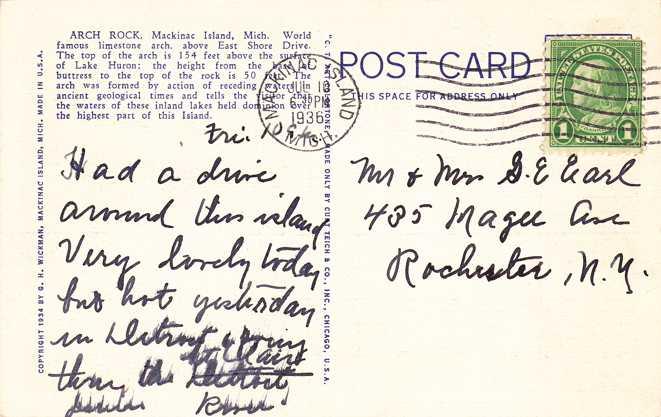 ARCH ROCK, Mackinac Island, Mich. World
famous limestone arch, above East Shore Drive.
The top of the arch is 154 feet above the surface
of Lake Huron; the height from the
buttress to the top of the rock is 50 feet. The
arch was formed by action of receding waters in
ancient geological times and tells the time that
the waters of these inland lakes held dominion over
the highest part of this Island.
Fri. 10th
Had a drive
around this island
Very lovely today
but hot yesterday
in Detroit going
St Clair
thru the Detroit
River
COPYRIGHT 1934 BY G. H. WICKMAN, MACKINAC ISLAND, MICH. MADE IN U.S.A.
"C. T. ART-COLORTONE" MADE ONLY BY CURT TEICH & CO., INC., CHICAGO, U.S.A.
POST CARD
THIS SPACE FOR ADDRESS ONLY
MACKINAC ISLAND
JUL 10
PM
1936
MICH.
UNITED STATES POSTAGE
1 CENT 1
Mr & Mrs G. E Earl
435 Magee Ave
Rochester, N.Y.